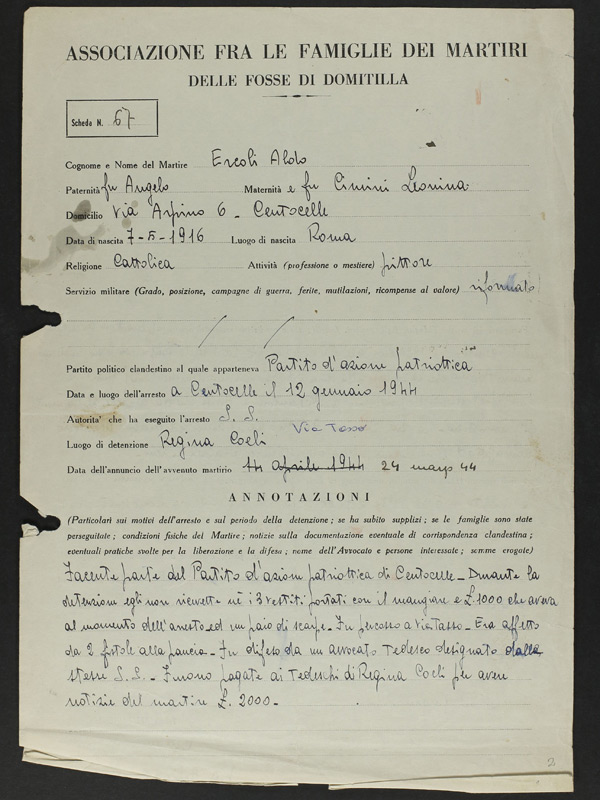 ASSOCIAZIONE FRA LE FAMIGLIE DEI MARTIRI
DELLE FOSSE DI DOMITILLA
Scheda N. 67
Cognome e Nome del Martire Ercoli Aldo
Paternità fu Angelo Maternità e fu Cimini Leonina
Domicilio Via Arpino 6 - Centocelle
Data di nascita 7-II-1916 Luogo di nascita Roma
Religione Cattolica Attività (professione o mestiere) pittore
Servizio militare (Grado, posizione, campagne di guerra, ferite, mutilazioni, ricompense al valore) riformato
Partito politico clandestino al quale apparteneva Partito d'azione patriottica
Data e luogo dell'arresto a Centocelle il 12 gennaio 1944
Autorita' che ha eseguito l'arresto S. S.
Luogo di detenzione Regina Coeli Via Tasso
Data dell'annuncio dell'avvenuto martirio 14 aprile 1944 24 marzo 44
ANNOTAZIONI
(Particolari sui motivi dell'arresto e sul periodo della detenzione; se ha subito supplizi; se le famiglie sono state
perseguitate; condizioni fisiche del Martire; notizie sulla documentazione eventuale di corrispondenza clandestina;
eventuali pratiche svolte per la liberazione e la difesa; nome dell'Avvocato e persone interessate; somme erogate)
Facente parte del Partito d'azione patriottica di Centocelle - Durante la
detenzione egli non ricevette nè i 3 vestiti portati con il mangiare e £. 1000 che aveva
al momento dell'arresto ed un paio di scarpe - Fu percosso a Via Tasso - Era affetto
da 2 fistole alla pancia - Fu difeso da un avvocato Tedesco designato dalle
stesse S. S. - Furono pagate ai Tedeschi di Regina Coeli per avere
notizie del martire £. 2000 -